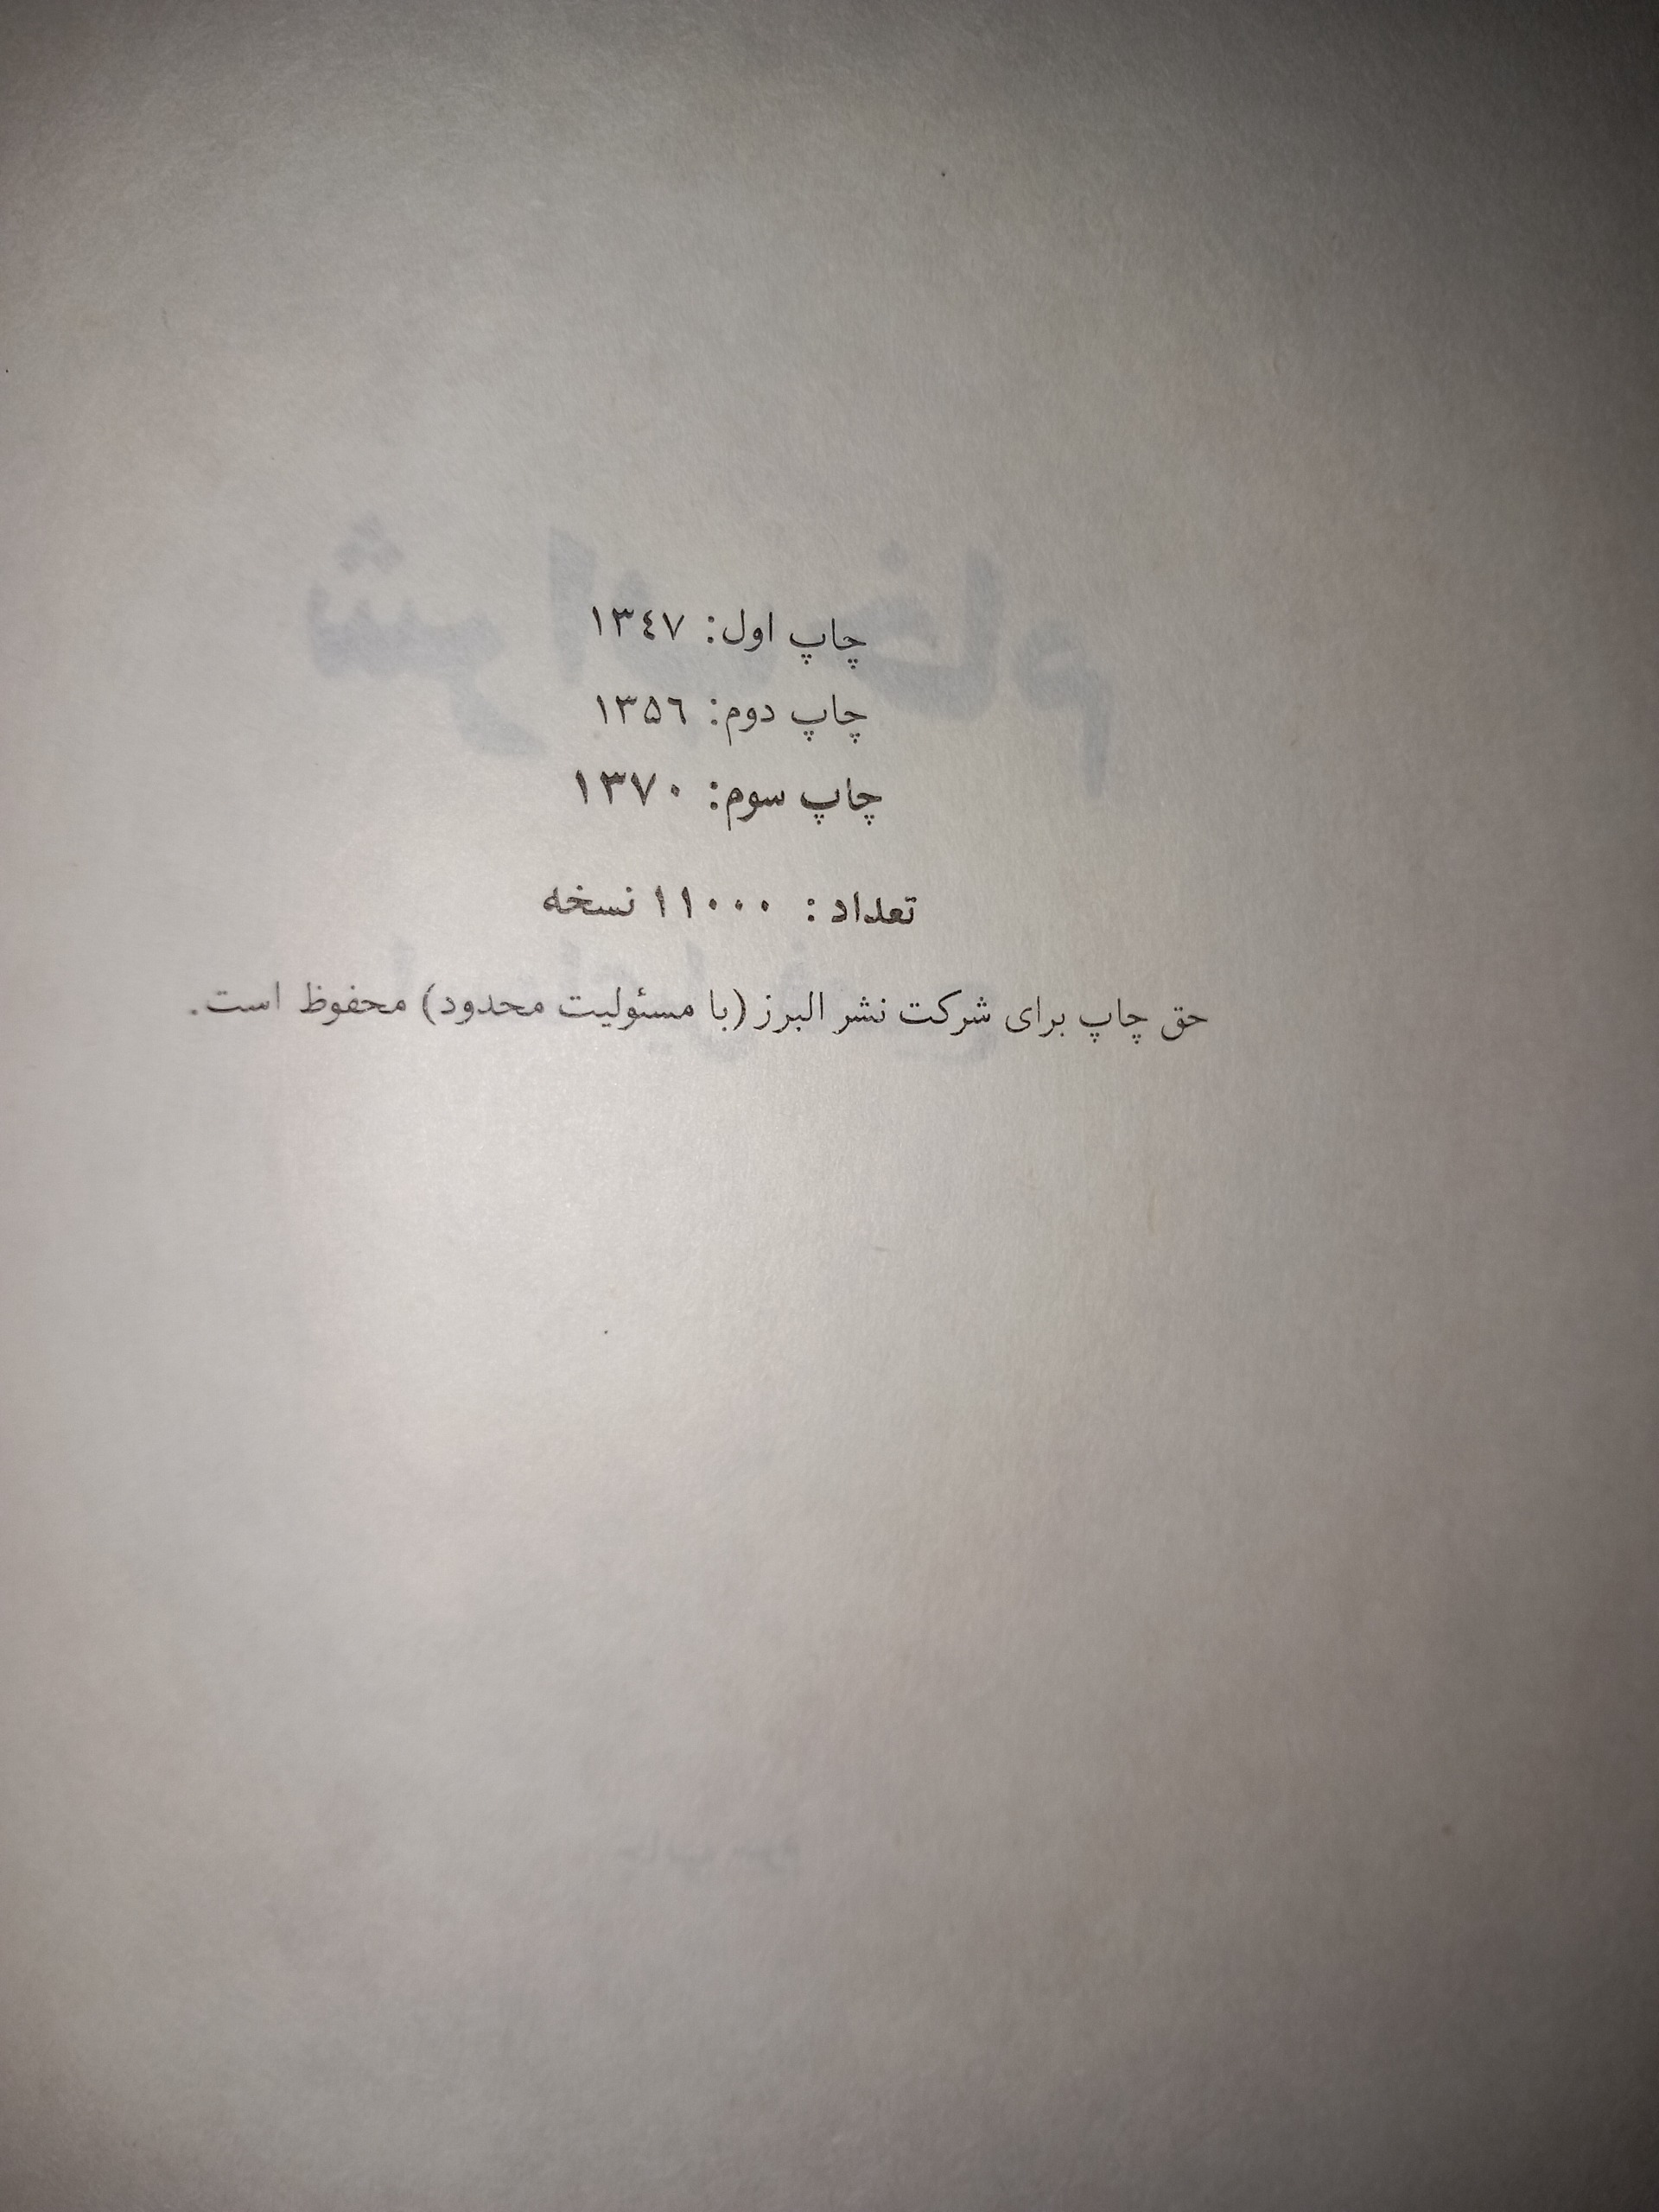 چاپ اول: ۱۳٤۷
چاپ دوم: ۱۳۵٦
چاپ سوم: ۱۳۷۰
تعداد : ۱۱۰۰۰ نسخه
حق چاپ برای شرکت نشر البرز (با مسئولیت محدود) محفوظ است.